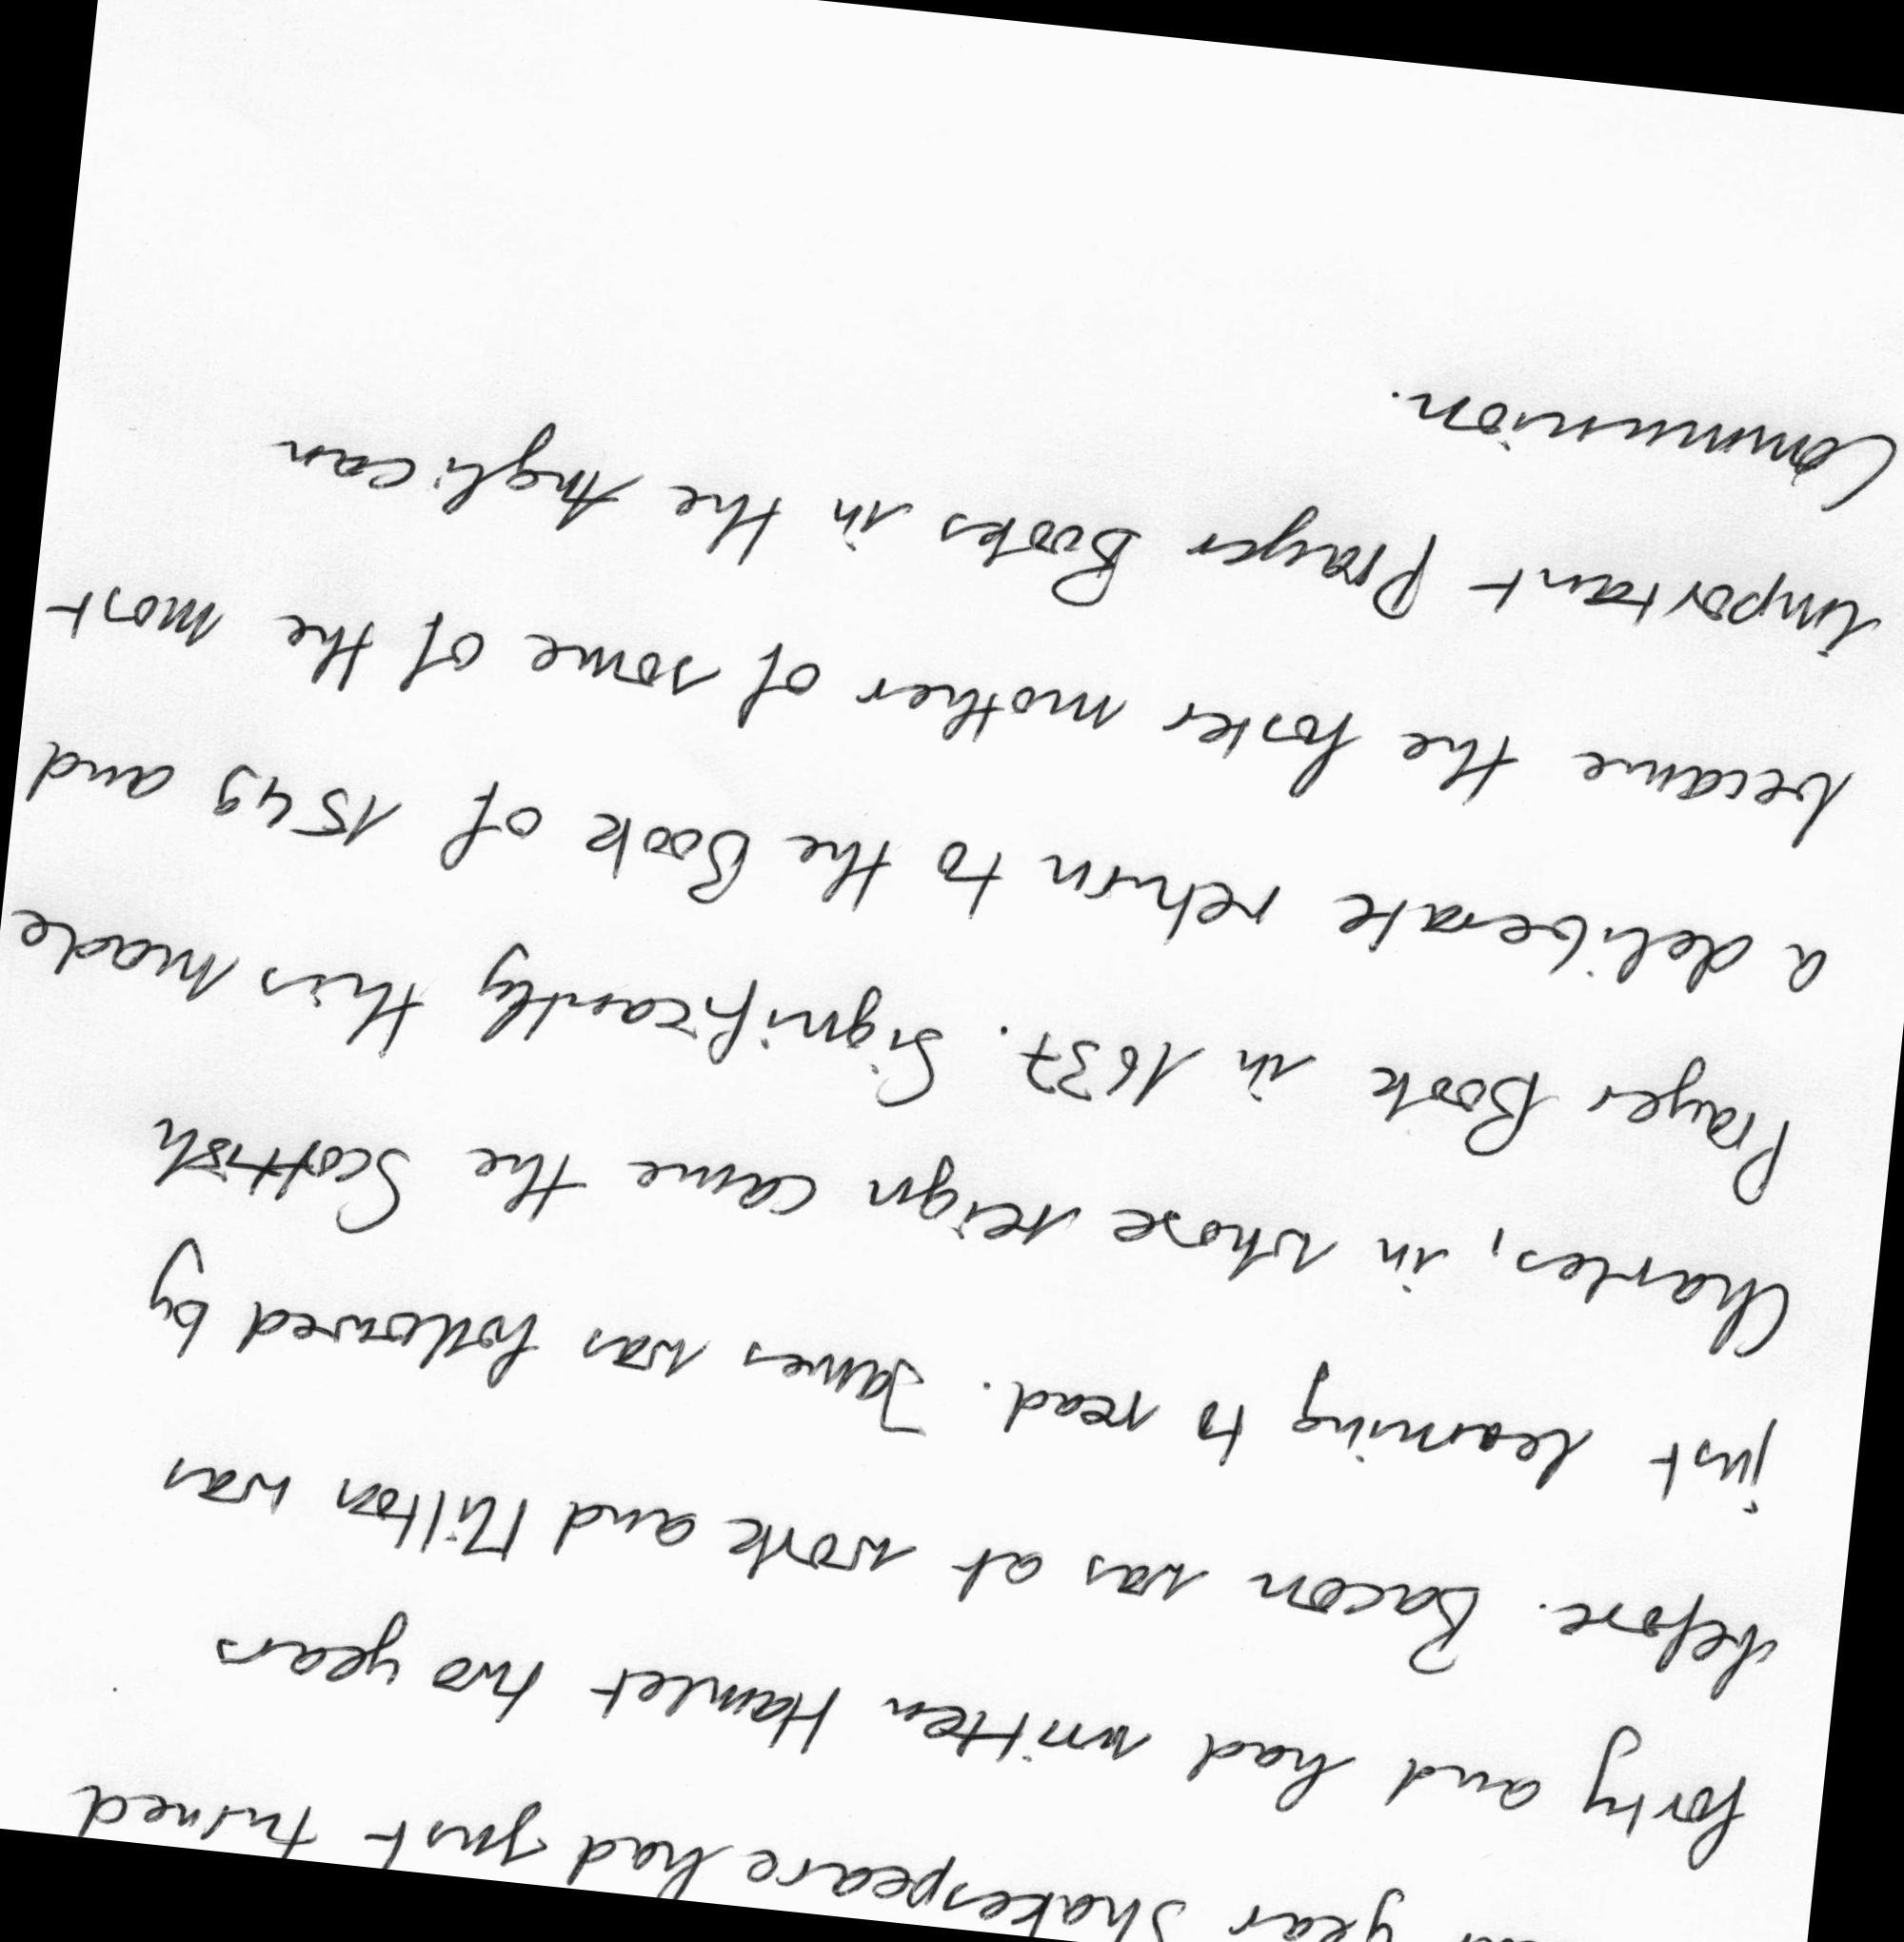 year Shakespeare had just turned
forty and had written Hamlet two years
before. Bacon was at work and Milton was
just learning to read. James was followed by
Charles, in whose reign came the Scottish
Prayer Book in 1637. Significantly this made
a deliberate return to the Book of 1549 and
became the foster mother of some of the most
important Prayer Books in the Anglican
Communion.